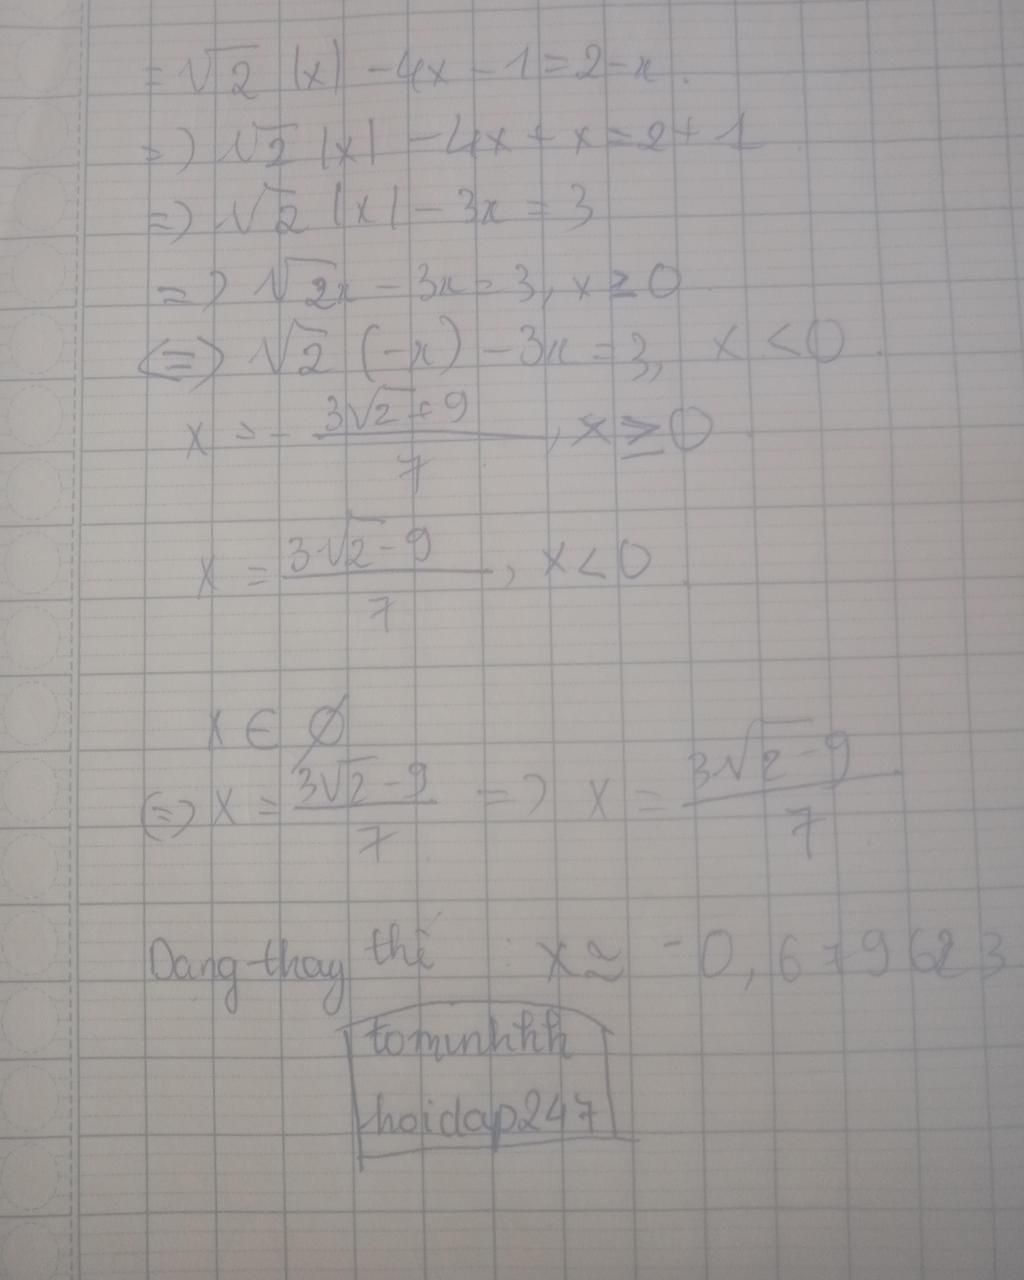 = √2 |x| - 4x - 1 = 2 - x.
=> √2 |x| - 4x + x = 2 + 1
=> √2 |x| - 3x = 3
=> √2x - 3x = 3, x ≥ 0
(=) √2 (-x) - 3x = 3, x < 0.
x = - (3√2 + 9)/7, x ≥ 0
x = (3√2 - 9)/7, x < 0
x ∈ ∅
(=) x = (3√2 - 9)/7 => x = (3√2 - 9)/7
Dạng thay thế : x ≈ -0,679623
tominhhh
hoidap247